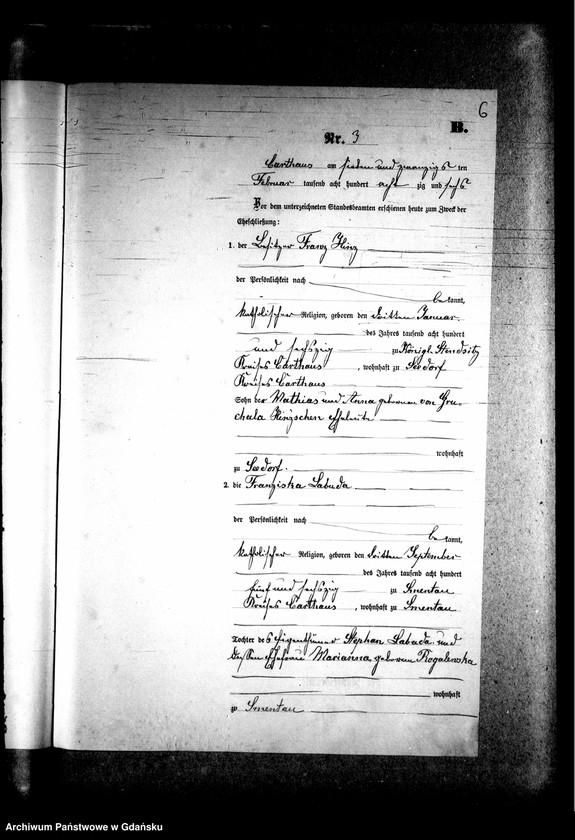 6
B.
Nr. 3
Carthaus am sieben und zwanzigsten
Februar tausend acht hundert achtzig und sechs
Vor dem unterzeichneten Standesbeamten erschienen heute zum Zweck der
Eheschließung:
1. der Besitzer Franz Hinz
der Persönlichkeit nach
bekannt,
katholischer Religion, geboren den dritten Januar
des Jahres tausend acht hundert
und sechszig zu Königl. Stendsitz
Kreises Carthaus, wohnhaft zu Seedorf
Kreises Carthaus
Sohn der Mathias und Anna geborenen von Gru-
chala Hinzschen Eheleute
wohnhaft
zu Seedorf.
2. die Franziska Labuda
der Persönlichkeit nach
bekannt,
katholischer Religion, geboren den dritten September
des Jahres tausend acht hundert
fünf und sechszig zu Smentau
Kreises Carthaus, wohnhaft zu Smentau
Tochter des Eigenthümer Stephan Labuda und
dessen Ehefrau Marianna geborene Rogalewska
wohnhaft
zu Smentau
Archiwum Państwowe w Gdańsku